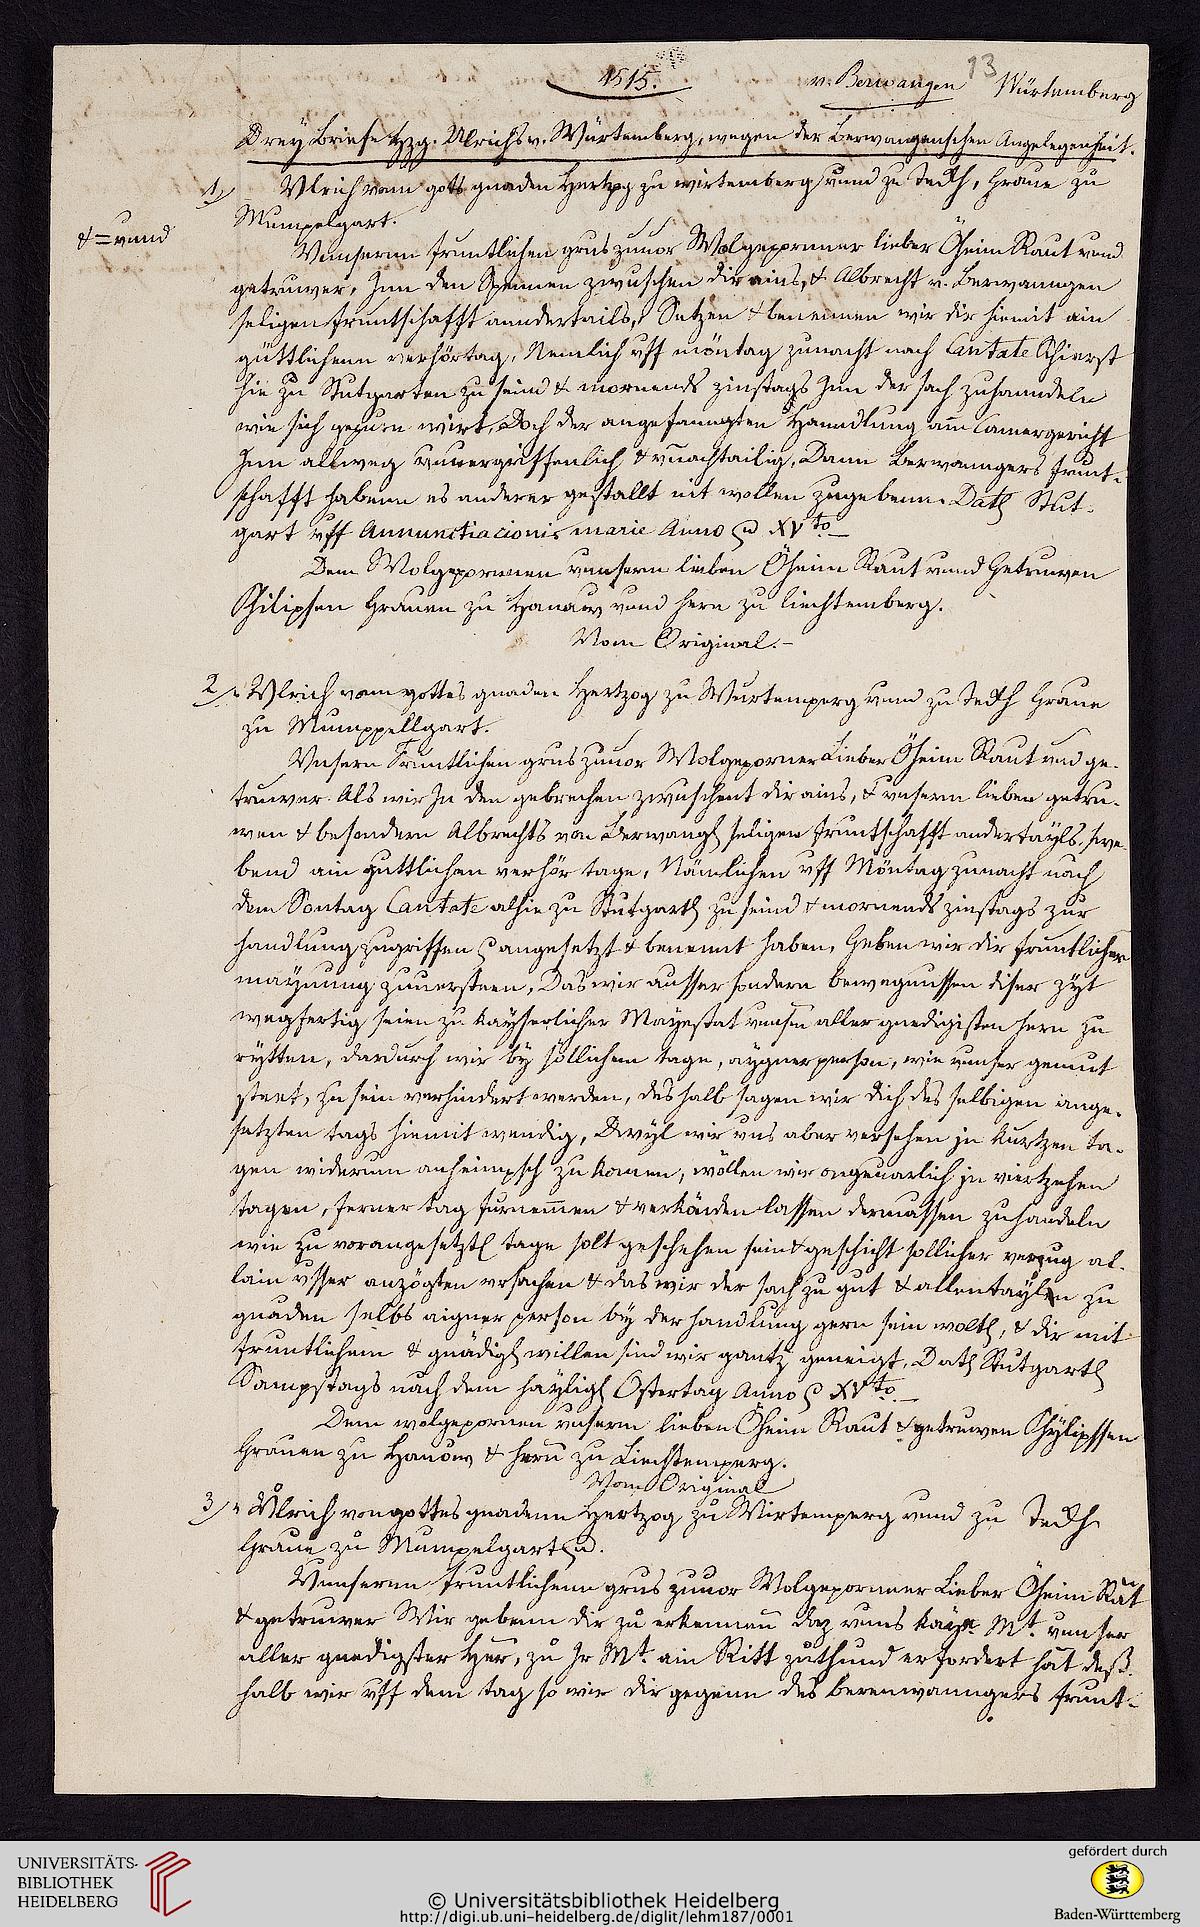 1515.
v. Berwangen
13
Würtemberg
Drey Briefe Hzg. Ulrichs v. Würtemberg, wegen der Berwangenschen Angelegenheit.
1./ Vlrich vonn gots gnaden Hertzog zu wirtemberg vnnd zu Teckh, Graue zu
Mumpelgart.
& = vnnd
Vnnsernn fruntlichen grus zuuor Wolgepornner lieber Öheim Raut vnnd
getruwer, Inn den Spennen zwuschen dir ains, & Albrecht v. Berwanngen
seligen fruntschafft anndertails, Setzen & benennen wir dir hiemit ain
güttlichenn verhörtag, Nemlich vff möntag zunacht nach Cantate schierst
hie zu Stutgarten zu seind & mornends zinstags Inn der sach zuhanndeln
wie sich gepurn wirt, Doch der angefanngten Hanndlung am Camergericht
Inn allweg vnuergriffenlich & vnachtailig, Dann Berwanngers frunt-
schafft habenn es anderer gestallt nit wollen zugebenn. Dat Stut-
gart vff Annunctiacionis marie Anno XVto
Dem Wolgepornnen vnnserm lieben Öheim Raut vnnd Getruwen
Philipsen Grauen zu Hanaw vnnd hern zu Liechtemberg.
Vom Original.-
2./ Vlrich von gottes gnaden Hertzog zu Wurtemperg vnnd zu Teckh Graue
zu Mumppellgart.
Vnsern Fruntlichen grus zuuor Wolgeporner Lieber Öheim Raut vnd ge-
truwer. Als wir In den gebrechen zwuschent dir ains, & vnserm lieben getru-
wen & besondern Albrechts von Berwang seligen fruntschafft andertayls, swe-
bend ain guttlichen verhör tage, Nämlichen vff Möntag zunacht nach
dem Sontag Cantate alhie zu Stutgart zu seind & mornends zinstags zur
handlung zugriffen angesetzt & benennt haben, Geben wir dir fruntlicher
maynung zuuersteen, Das wir ausser sondern bewegnussen diser zyt
wegfertig seien zu Kayserlicher Mayestat vnserm aller gnedigisten hern zu
rytten, dardurch wir by sollichem tage, aygner person, wie vnnser gemut
steet, zu sein verhindert werden, deshalb sagen wir dich des selbigen ange-
setzten tags hiemit wendig, Dwyl wir vns aber versehen in kurtzen ta-
gen widerum anheimpsch zu komen, wöllen wir ongeuarlich in viertzehen
tagen, ferner tag furnemen & verkünden lassen dermassen zuhandeln
wie zu vorangesetzt tage solt geschehen sein & geschicht sollicher verzug al-
lain vsser anzögten vrsachen & das wir der sach zu gut & allentaylen zu
gnaden selbs aigner person by der handlung gern sein wolt, & dir mit
fruntlichem & gnädig willen sind wir gantz geneigt. Dat Stutgart
Sampstags nach dem hayligen Ostertag Anno XVto
Dem wolgepornen vnserm lieben Öheim Raut & getruwen Phylipssen
Grauen zu Hanöw & hern zu Liechtemperg.
Vom Original
3./ Vlrich von gottes gnadenn Hertzog zu Wirtemperg vnnd zu Teckh
Graue zu Mumpelgart
Vnnsernn fruntlichenn grus zuuor Wolgepornner Lieber Öheim Rat
& getruwer Wir gebenn dir zu erkennen daz vnns Kay. Mt. vnnser
aller gnedigster Her, zu Ir Mt. ain Ritt zuthund erfordert hat deß-
halb wir vff dem tag so wir dir gegenn des berenwanngers frunt-
UNIVERSITÄTS-
BIBLIOTHEK
HEIDELBERG
© Universitätsbibliothek Heidelberg
http://digi.ub.uni-heidelberg.de/diglit/lehm187/0001
gefördert durch
Baden-Württemberg